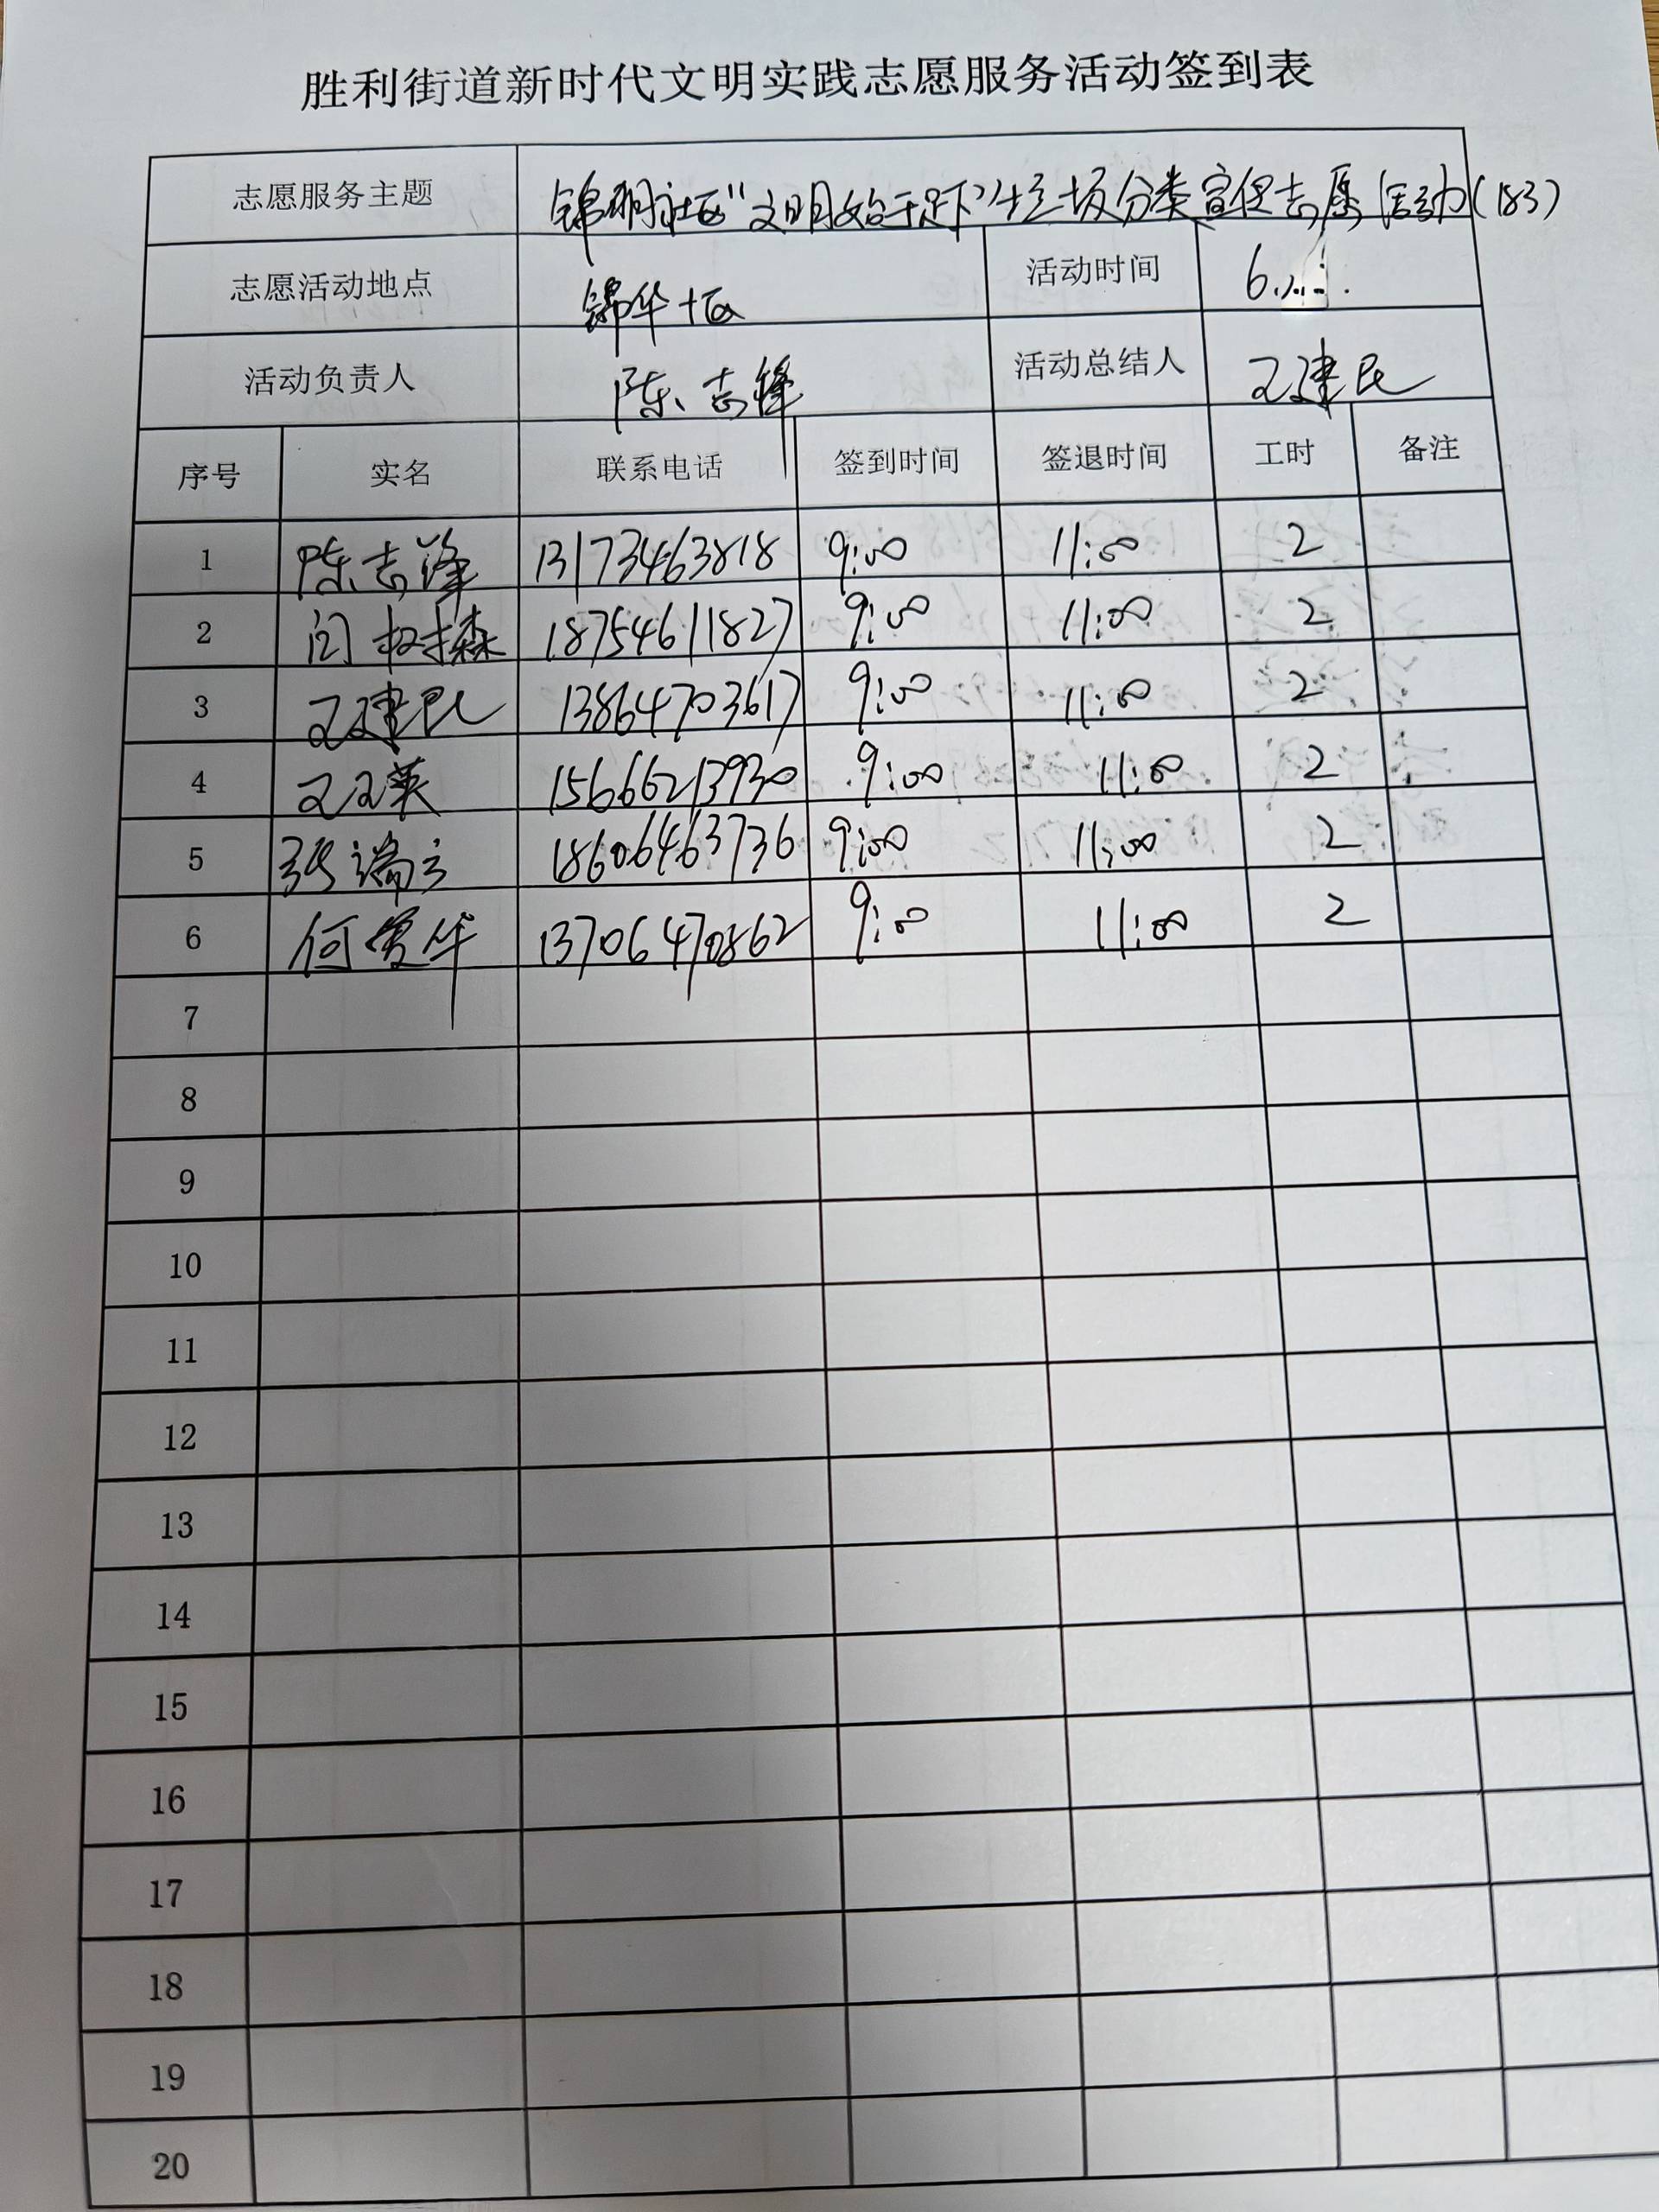 胜利街道新时代文明实践志愿服务活动签到表
志愿服务主题 锦明社区"文明始于足下"垃圾分类宣促志愿活动(183)
志愿活动地点 锦华十区 活动时间 6.
活动负责人 陈志锋 活动总结人 王建民
序号 实名 联系电话 签到时间 签退时间 工时 备注
1 陈志锋 13173463818 9:00 11:00 2
2 闫树森 18754611827 9:00 11:00 2
3 王建民 13864703617 9:00 11:00 2
4 王王英 15666213930 9:00 11:00 2
5 张端方 18606463736 9:00 11:00 2
6 何爱华 13706470862 9:00 11:00 2
7
8
9
10
11
12
13
14
15
16
17
18
19
20